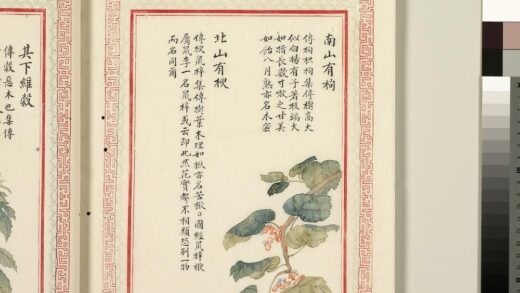 南山有枸
傳枸枳枸集傳樹高大
似白楊有子著枝端大
如指長數寸噉之甘美
如飴八月熟亦名木蜜
北山有楰
傳楰鼠梓集傳樹葉木理如楸亦名苦楸○圖經鼠梓楸
屬鼠李一名鼠梓或云即此然花實都不相類恐別一物
而名同爾
其下維穀
傳穀惡木也集傳